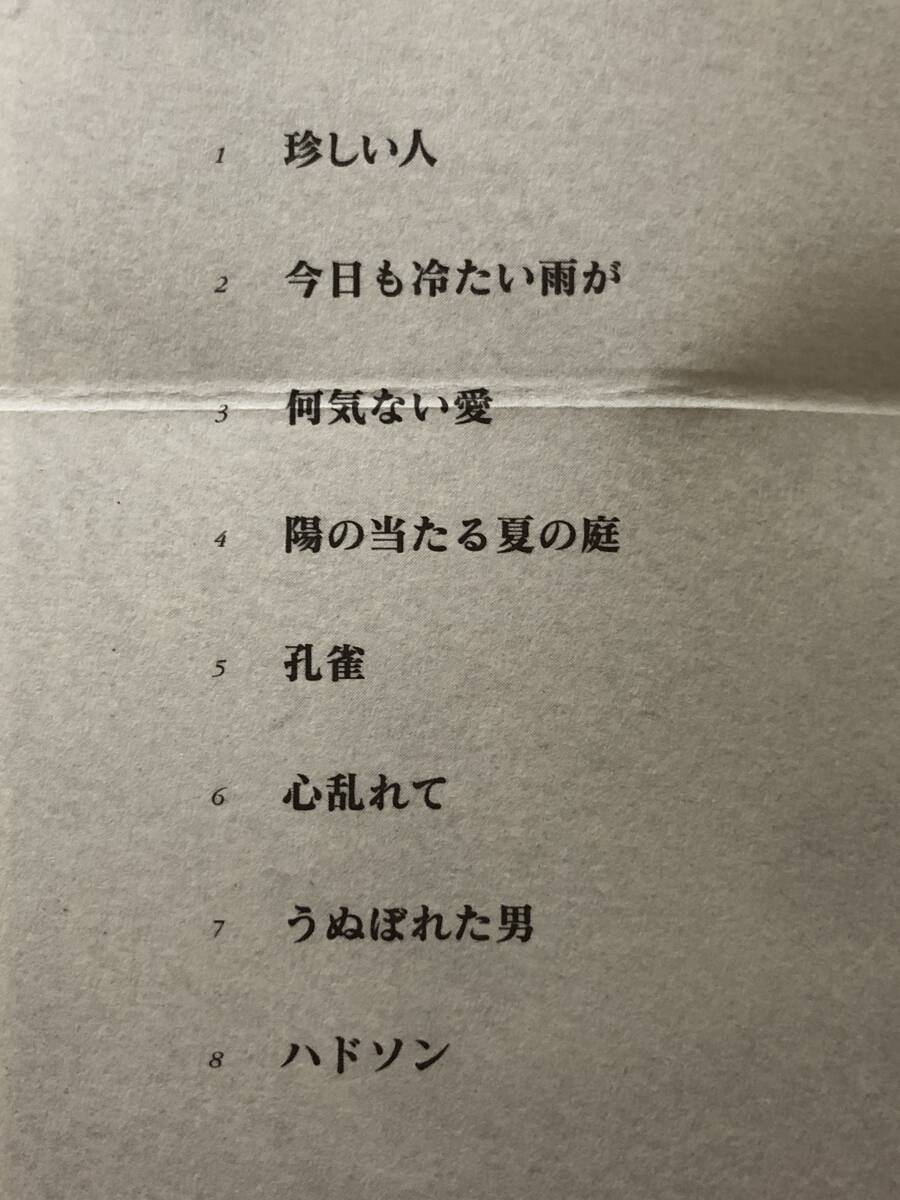 1 珍しい人
2 今日も冷たい雨が
3 何気ない愛
4 陽の当たる夏の庭
5 孔雀
6 心乱れて
7 うぬぼれた男
8 ハドソン